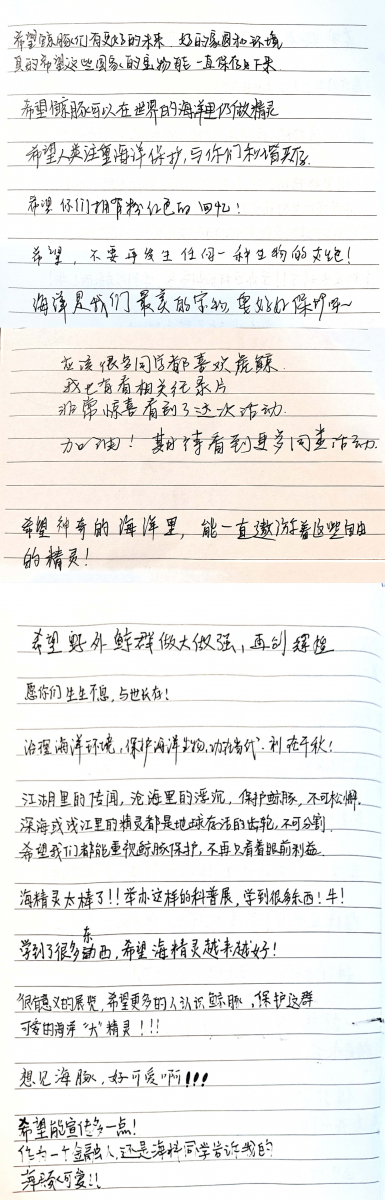 希望鲸豚们有更好的未来 好的家园和环境
真的希望这些国家的宝物能一直保存下来
希望鲸豚可以在世界的海洋里仍做精灵
希望人类注重海洋保护,与你们和谐共存.
希望你们拥有粉红色的回忆!
希望,不要再发生任何一种生物的灭绝!
海洋是我们最美的宝物,要好好保护呀~
应该很多同学都喜欢虎鲸.
我也有看相关纪录片
非常惊喜看到了这次活动.
加油! 期待看到更多同类活动.
希望神奇的海洋里,能一直遨游着这些自由
的精灵!
希望野外鲸群做大做强,再创辉煌
愿你们生生不息,与世长存!
治理海洋环境,保护海洋生物,功在当代.利在千秋!
江湖里的传闻,沧海里的浮沉,保护鲸豚,不可松懈.
深海或浅江里的精灵都是地球存活的齿轮,不可分割.
希望我们都能重视鲸豚保护,不再只看着眼前利益.
海精灵太棒了!!举办这样的科普展,学到很多东西!牛!
学到了很多东西,希望海精灵越来越好!
很有意义的展览,希望更多的人认识鲸豚,保护这群
可爱的海洋“大”精灵!!!
想见海豚,好可爱啊!!!
希望能宣传多一点!
作为一个金融人,还是海科同学告诉我的
海豚可爱!!